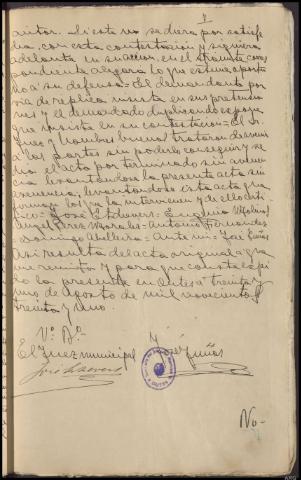 autor. Si este no se diera por satisfe
cho con esta contestacion y siguiera
adelante en su accion, en el tramite corres
pondiente alegara lo que estime aporta
do a su defensa = El demandante por
via de replica insista en sus pretensio
nes y el demandado duplicando espone
que insista en su contestacion = El Sr.
Juez y hombres buenos trataron de avenir
a las partes sin poderlo conseguir y se
dio el acto por terminado sin avenen
cia levantandose la presente acta sin
avenencia, levantandose esta acta que
firman los que la intervienen y de ello certi
fico = José = Eugenio
Angel Perez Morales = Antonio Fernandez
Domingo Abelleira = Ante mi = José
Asi resulta del acta original a que
me remito y para que conste expi
do la presente en Outes a treinta y
uno de Agosto de mil novecientos
treinta y uno.
Vº Bº
El Juez municipal José
José
No-